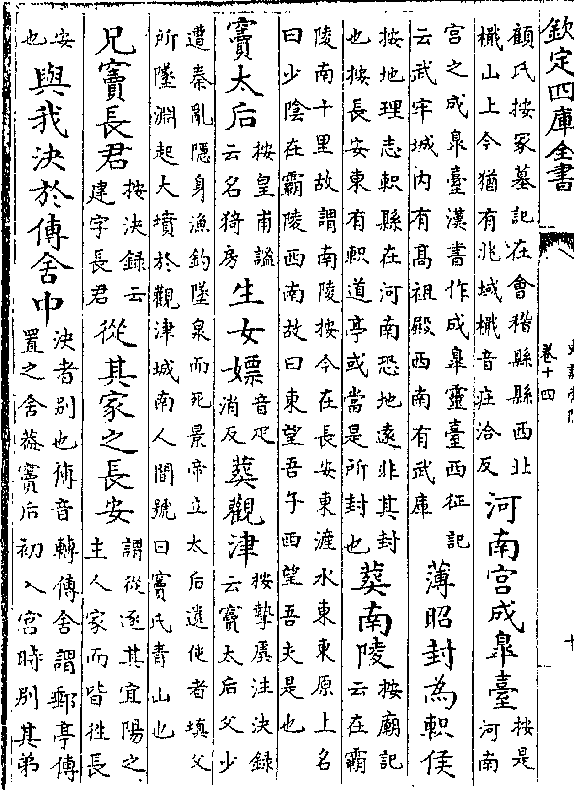 欽定四庫全書
史記索隱
卷十四
十
顧氏按冢墓記在會稽縣縣西北
檝山上今猶有兆域檝音庄洽反
河南宮成臯臺
按是
河南
宮之成臯臺漢書作成臯靈臺西征記
云武牢城内有髙祖殿西南有武庫
薄昭封為軹侯
按地理志軹縣在河南恐地逺非其封
也按長安東有軹道亭或當是所封也
葬南陵
按廟記
云在霸
陵南十里故謂南陵按今在長安東滻水東東原上名
曰少陰在霸陵西南故曰東望吾子西望吾夫是也
竇太后
按皇甫謐
云名猗房
生女嫖
音疋
消反
葬觀津
按摯虞注決録
云竇太后父少
遭秦亂隱身漁釣墜泉而死景帝立太后遣使者填父
所墜淵起大墳於觀津城南人間號曰竇氏青山也
兄竇長君
按決録云
建字長君
從其家之長安
謂從逐其宜陽之
主人家而皆徃長
安
也
與我決於傳舍中
決者别也傳音轉傳舍謂郵亭傳
置之舍葢竇后初入宮時别其弟